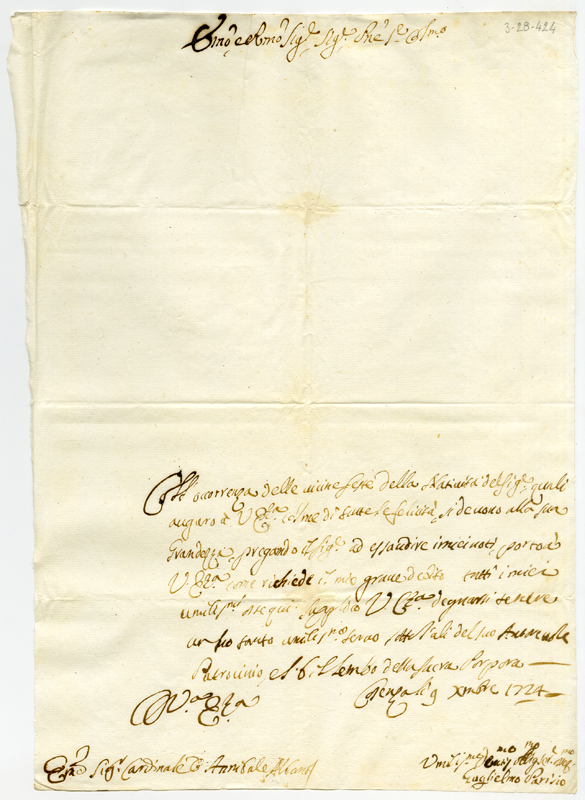 3-28-424
Emo e Rmo Sigr. Sigr.
ocorrenza delle vicine feste della Natività del Sigr. quali
auguro à V Eza colme di tutte le felicità, si devono alla sua
Grandezza, pregando il Sigr. ad essaudire i miei voti, porto à
V Eza come richiede il mio grave debito tutti i miei
umilismi ossequi. V Eza degnarsi tenere
un suo tanto umilissmo servo sotto l'ali del suo
Patrocinio, e lembo della sacra Porpora —
xmbre 1724
Di Va Eza
Emo Sigr. Cardinale Annibale Albani
Umilismo
Guglielmo Parisio